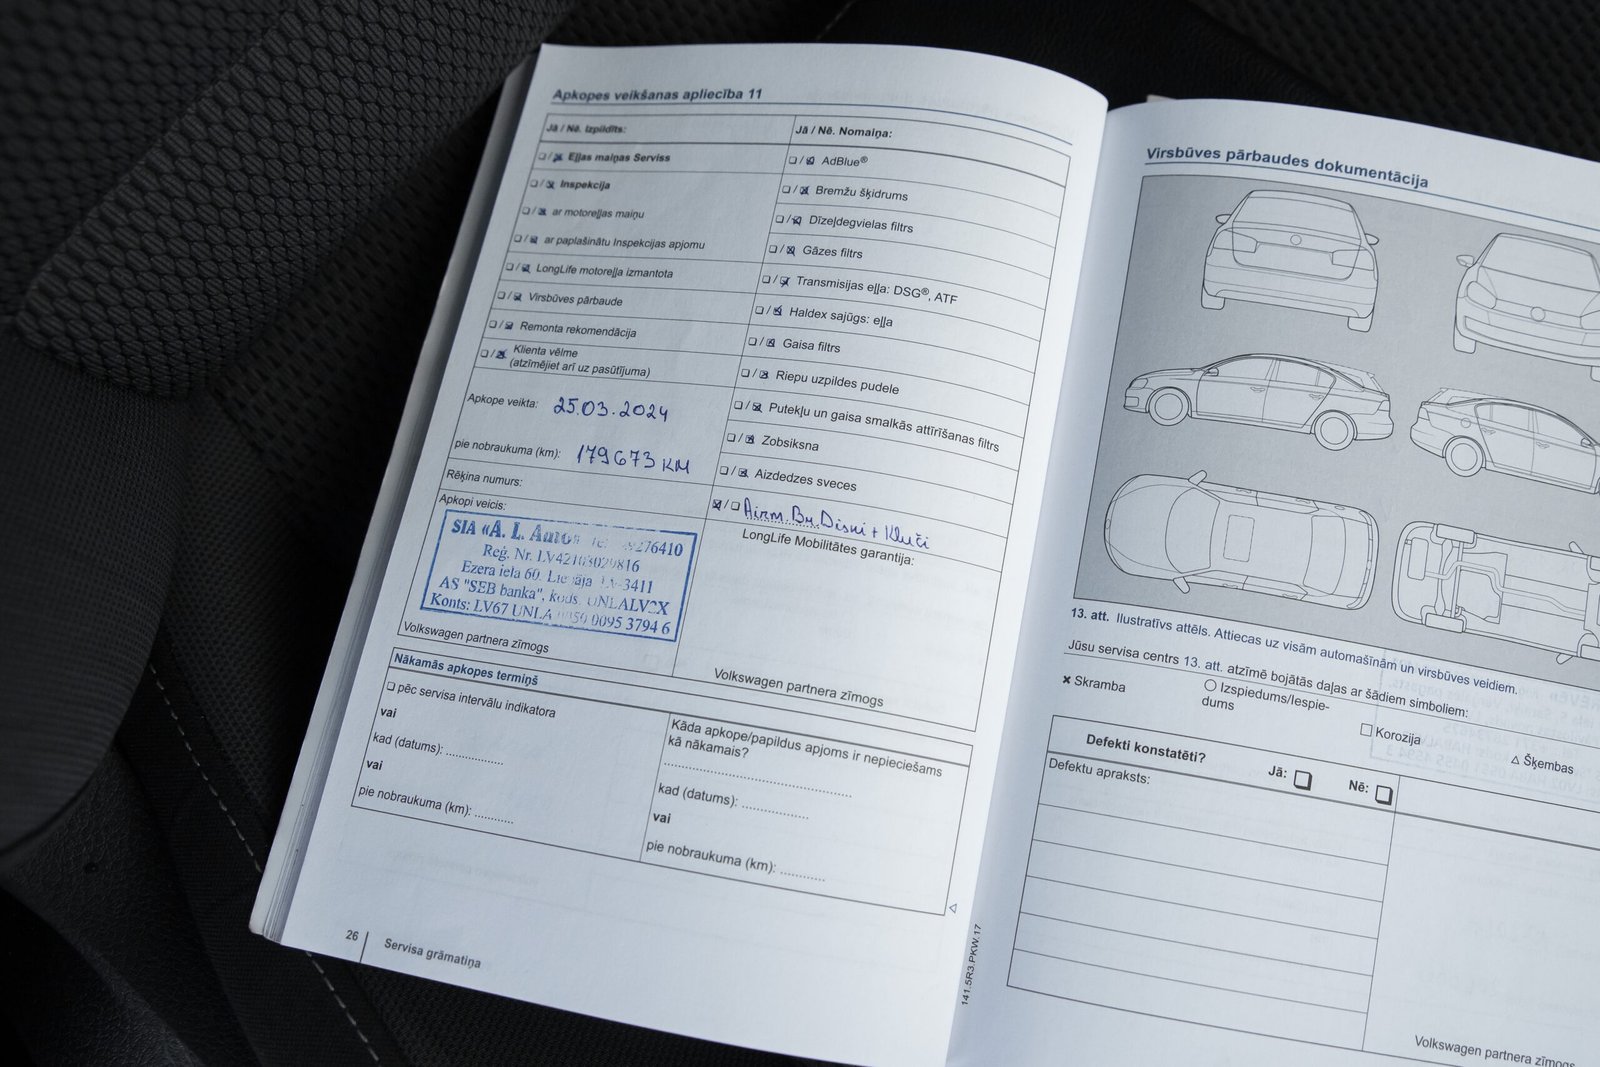 Apkopes veikšanas apliecība 11
Jā / Nē. Izpildīts:
❑ / ☒ Eļļas maiņas Serviss
❑ / ☒ Inspekcija
❑ / ☒ ar motoreļļas maiņu
❑ / ☒ ar paplašinātu Inspekcijas apjomu
❑ / ☒ LongLife motoreļļa izmantota
❑ / ☒ Virsbūves pārbaude
❑ / ☒ Remonta rekomendācija
❑ / ☒ Klienta vēlme
(atzīmējiet arī uz pasūtījuma)
Apkope veikta: 25.03.2024
pie nobraukuma (km): 179673 KM
Rēķina numurs:
Apkopi veicis:
SIA «A. L. Auto» 276410
Reģ. Nr. LV42103029816
Ezera iela 60. Liepāja LV-3411
AS "SEB banka", kods. UNLALV2X
Konts: LV67 UNLA 0050 0095 3794 6
Volkswagen partnera zīmogs
Jā / Nē. Nomaiņa:
❑ / ☒ AdBlue®
❑ / ☒ Bremžu šķidrums
❑ / ☒ Dīzeļdegvielas filtrs
❑ / ☒ Gāzes filtrs
❑ / ☒ Transmisijas eļļa: DSG®, ATF
❑ / ☒ Haldex sajūgs: eļļa
❑ / ☒ Gaisa filtrs
❑ / ☒ Riepu uzpildes pudele
❑ / ☒ Putekļu un gaisa smalkās attīrīšanas filtrs
❑ / ☒ Zobsiksna
❑ / ☒ Aizdedzes sveces
☒ / ❑ Aizm. Br. Diski + Kluči
LongLife Mobilitātes garantija:
Volkswagen partnera zīmogs
Nākamās apkopes termiņš
❑ pēc servisa intervālu indikatora
vai
kad (datums): ..................
vai
pie nobraukuma (km): ............
Kāda apkope/papildus apjoms ir nepieciešams
kā nākamais?
............................................................
kad (datums): .....................
vai
pie nobraukuma (km): ..............
26
Servisa grāmatiņa
141.5R3.PKW.17
Virsbūves pārbaudes dokumentācija
13. att. Ilustratīvs attēls. Attiecas uz visām automašīnām un virsbūves veidiem.
Jūsu servisa centrs 13. att. atzīmē bojātās daļas ar šādiem simboliem:
✖ Skramba
○ Izspiedums/Iespie-
dums
□ Korozija
△ Šķembas
Defekti konstatēti?
Jā: ❑
Nē: ❑
Defektu apraksts:
Volkswagen partnera zīmogs